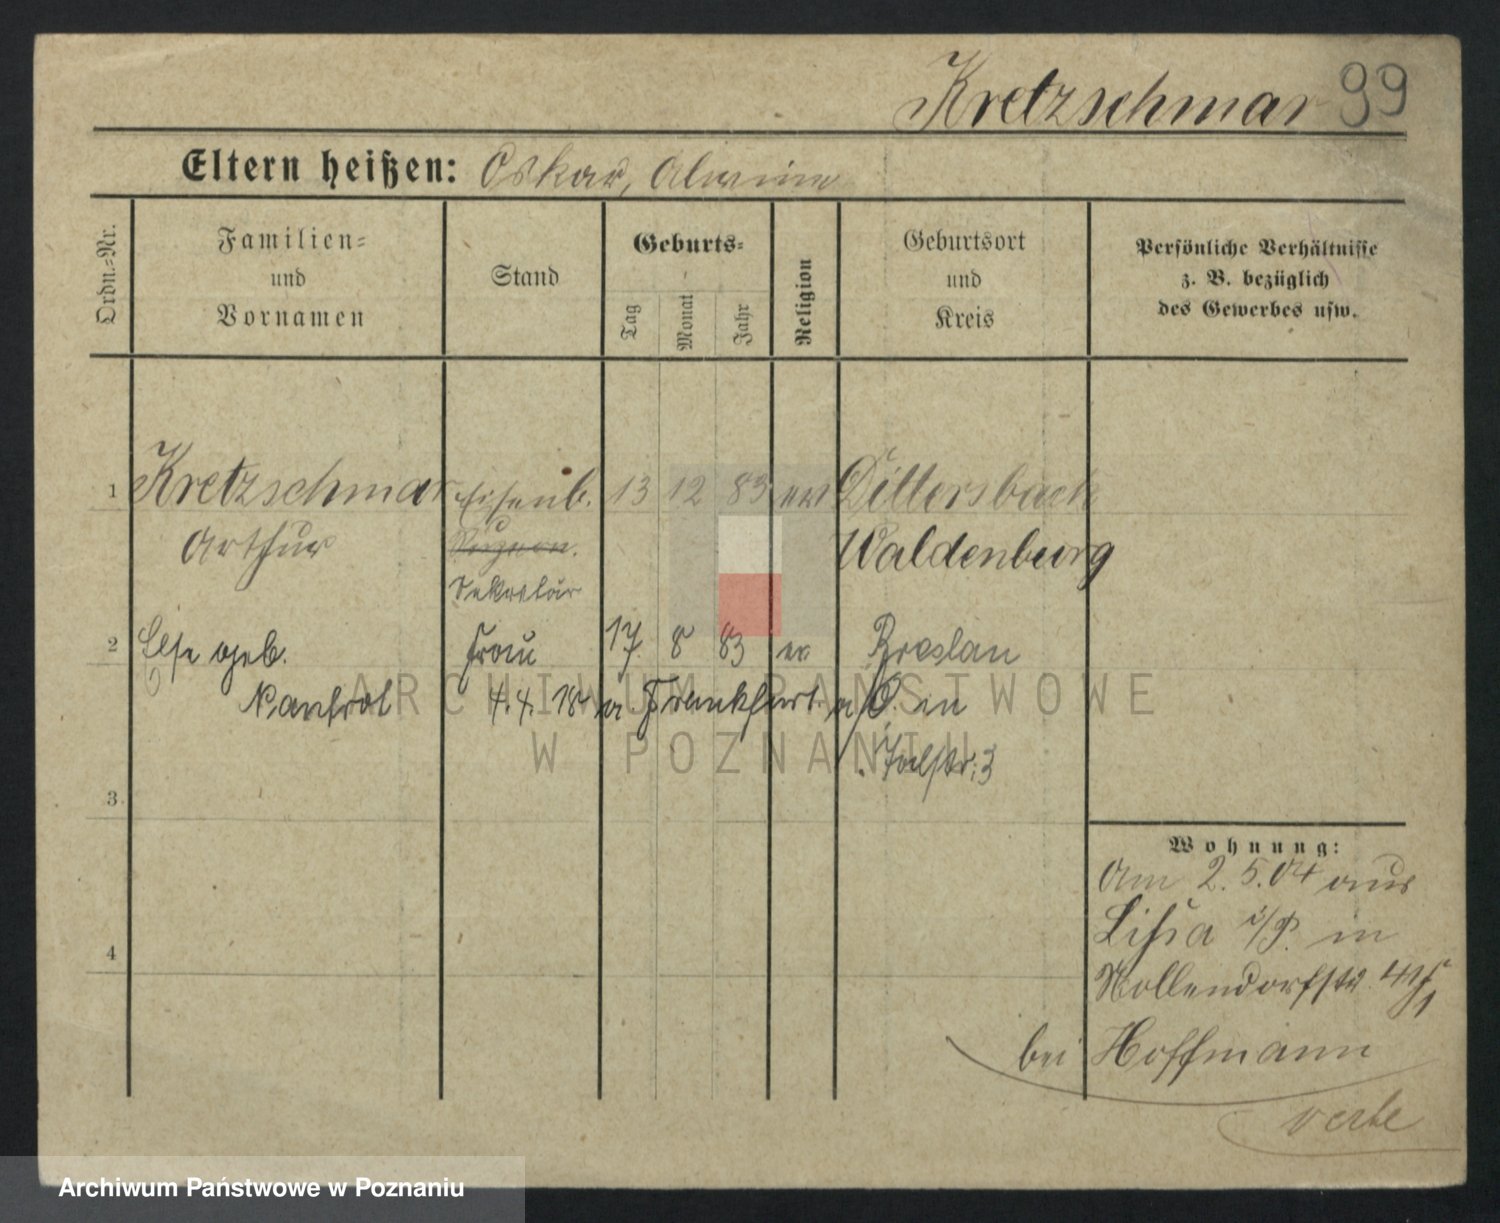 Kretzschmar 99
Eltern heißen: Oskar, Alwine
Ordn.-Nr.
Familien-
und
Vornamen
Stand
Geburts-
Tag
Monat
Jahr
Religion
Geburtsort
und
Kreis
Persönliche Verhältnisse
z. B. bezüglich
des Gewerbes usw.
1 Kretzschmar Eisenb. 13 12 83 ev Dittersbach
Arthur
Waldenburg
Sekretär
2 Else geb. Frau 17 8 83 ev Breslau
4.4. 18 Frankfurt a/O. in
3
4
Wohnung:
Am 2. 5. 04 aus
Lissa i/P. in
Nollendorfstr.
bei Hoffmann
verte
ARCHIWUM PAŃSTWOWE
W POZNANIU
Archiwum Państwowe w Poznaniu